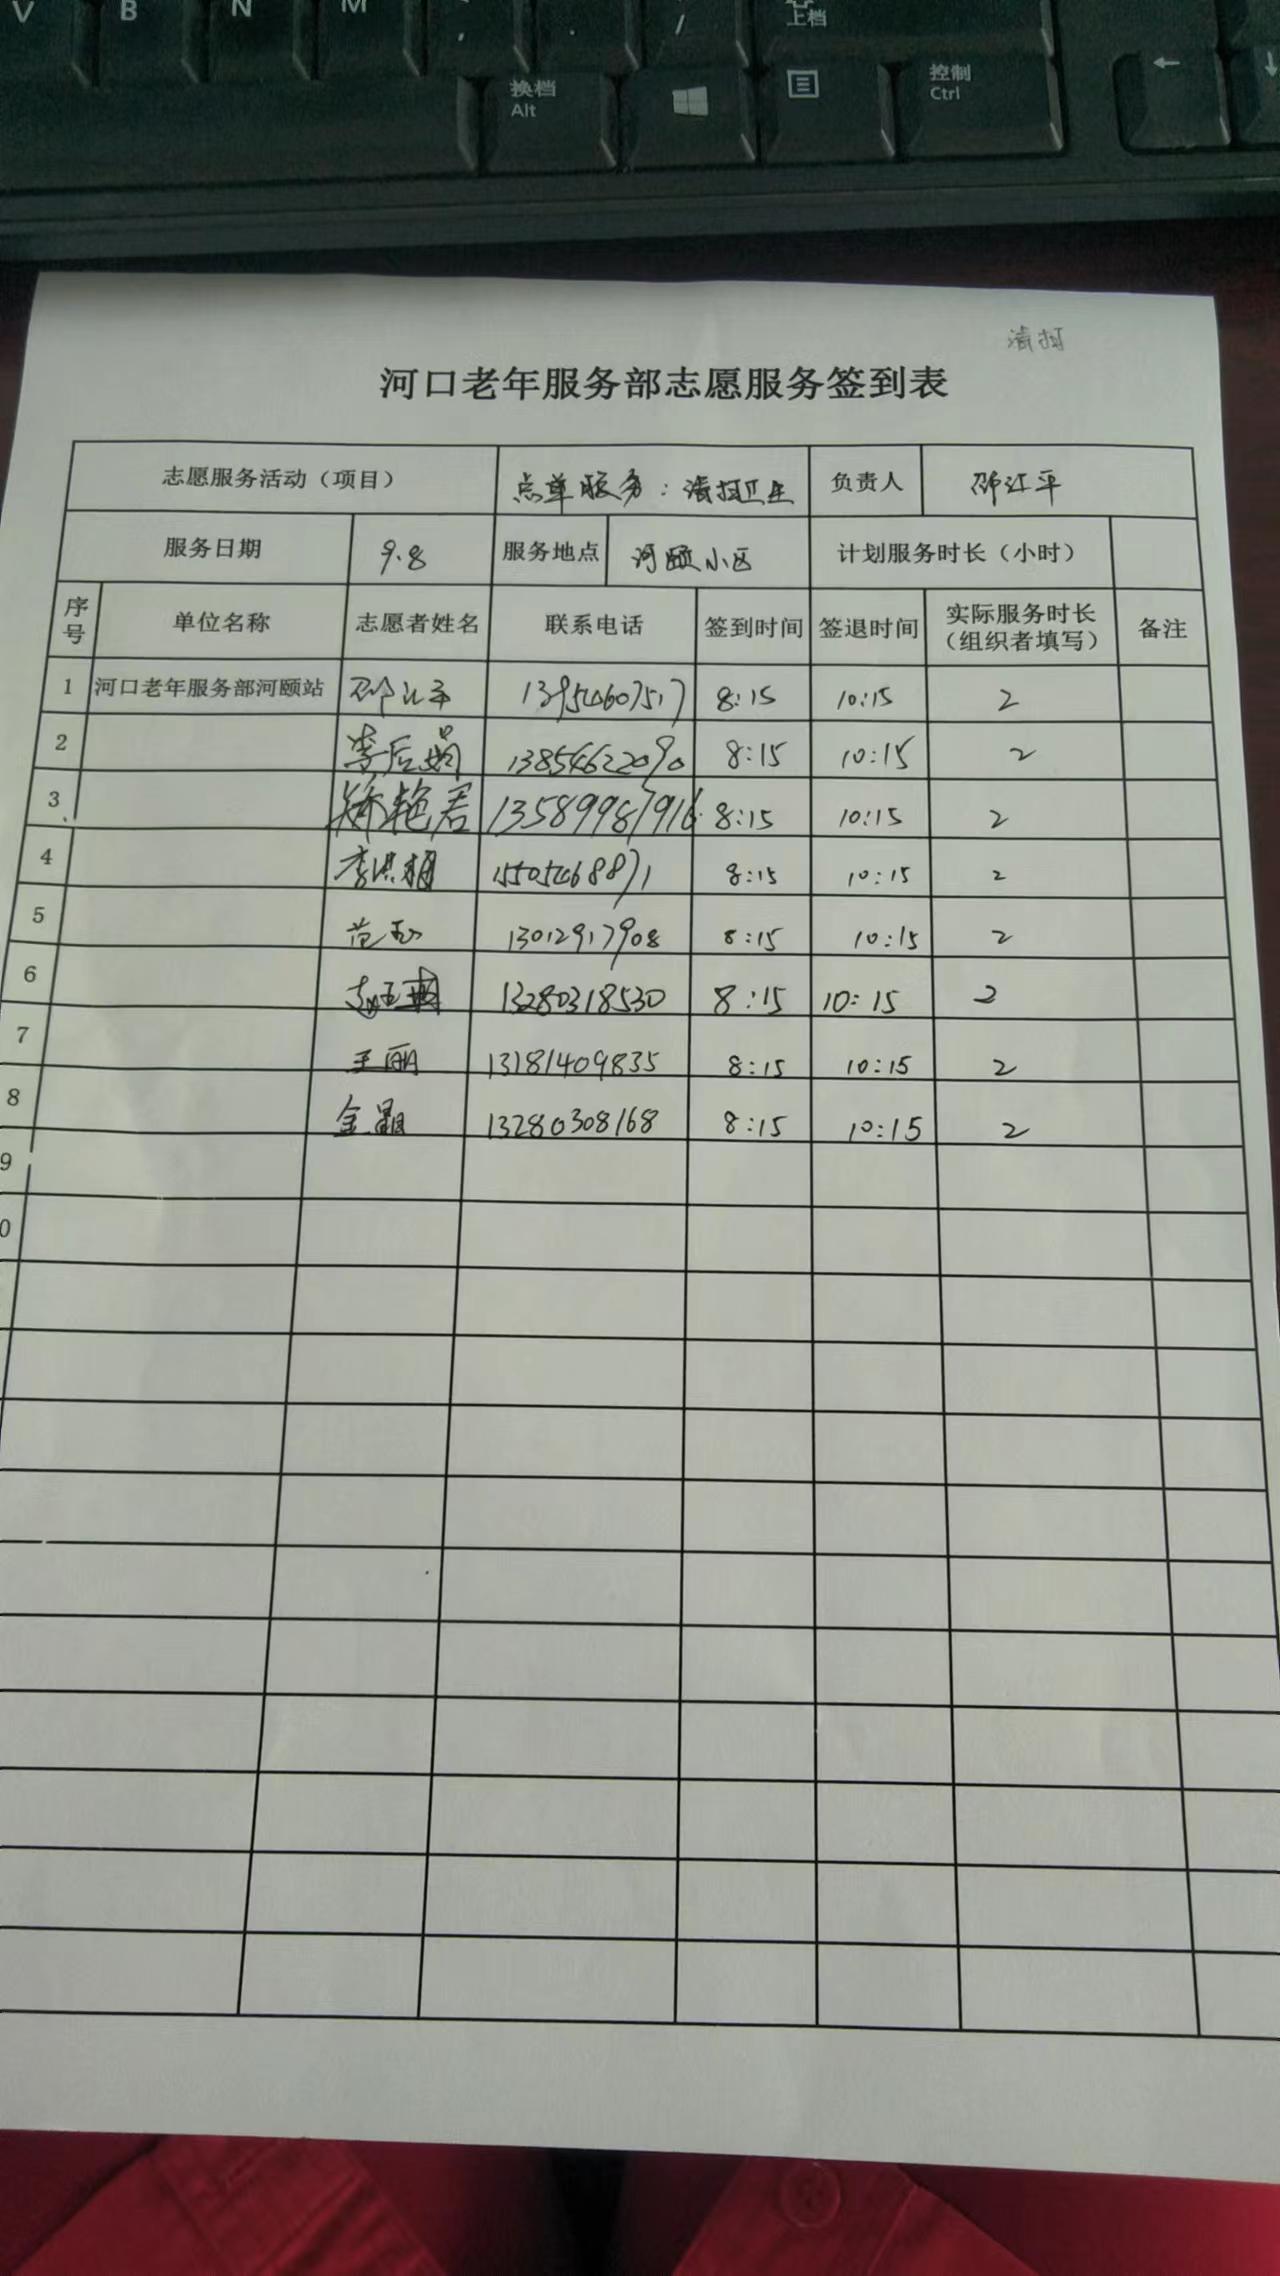 V B N M
上档
换档
Alt
控制
Ctrl
清扫
河口老年服务部志愿服务签到表
志愿服务活动（项目） 点单服务：清扫卫生 负责人 邵江平
服务日期 9.8 服务地点 河颐小区 计划服务时长（小时）
序号 单位名称 志愿者姓名 联系电话 签到时间 签退时间 实际服务时长（组织者填写） 备注
1 河口老年服务部河颐站 邵江平 13954607517 8:15 10:15 2
2 李后娟 13854622090 8:15 10:15 2
3 艳君 13589987916 8:15 10:15 2
4 李洪梅 15505468871 8:15 10:15 2
5 范 13012917908 8:15 10:15 2
6 赵玉 13280318530 8:15 10:15 2
7 王丽 13181409835 8:15 10:15 2
8 金 13280308168 8:15 10:15 2
9
0